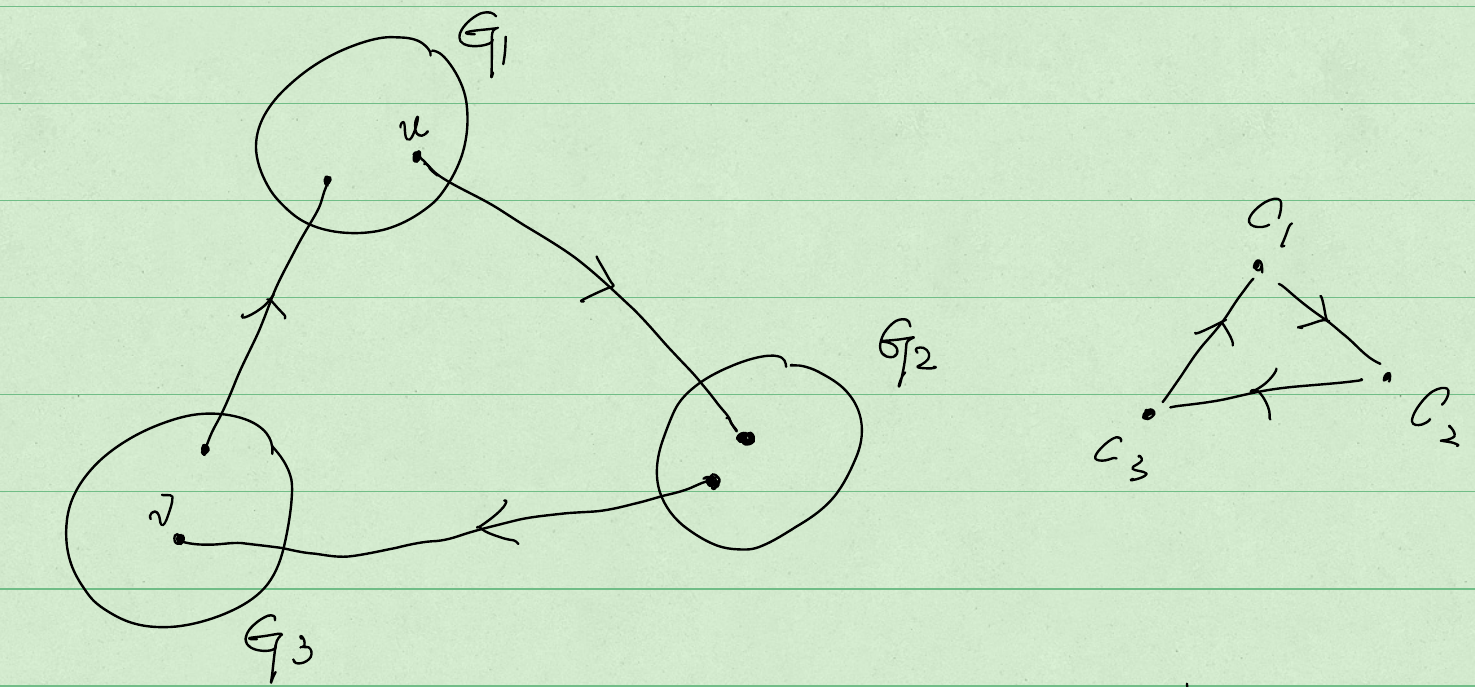 G1
u
G2
v
G3
C1
C2
C3